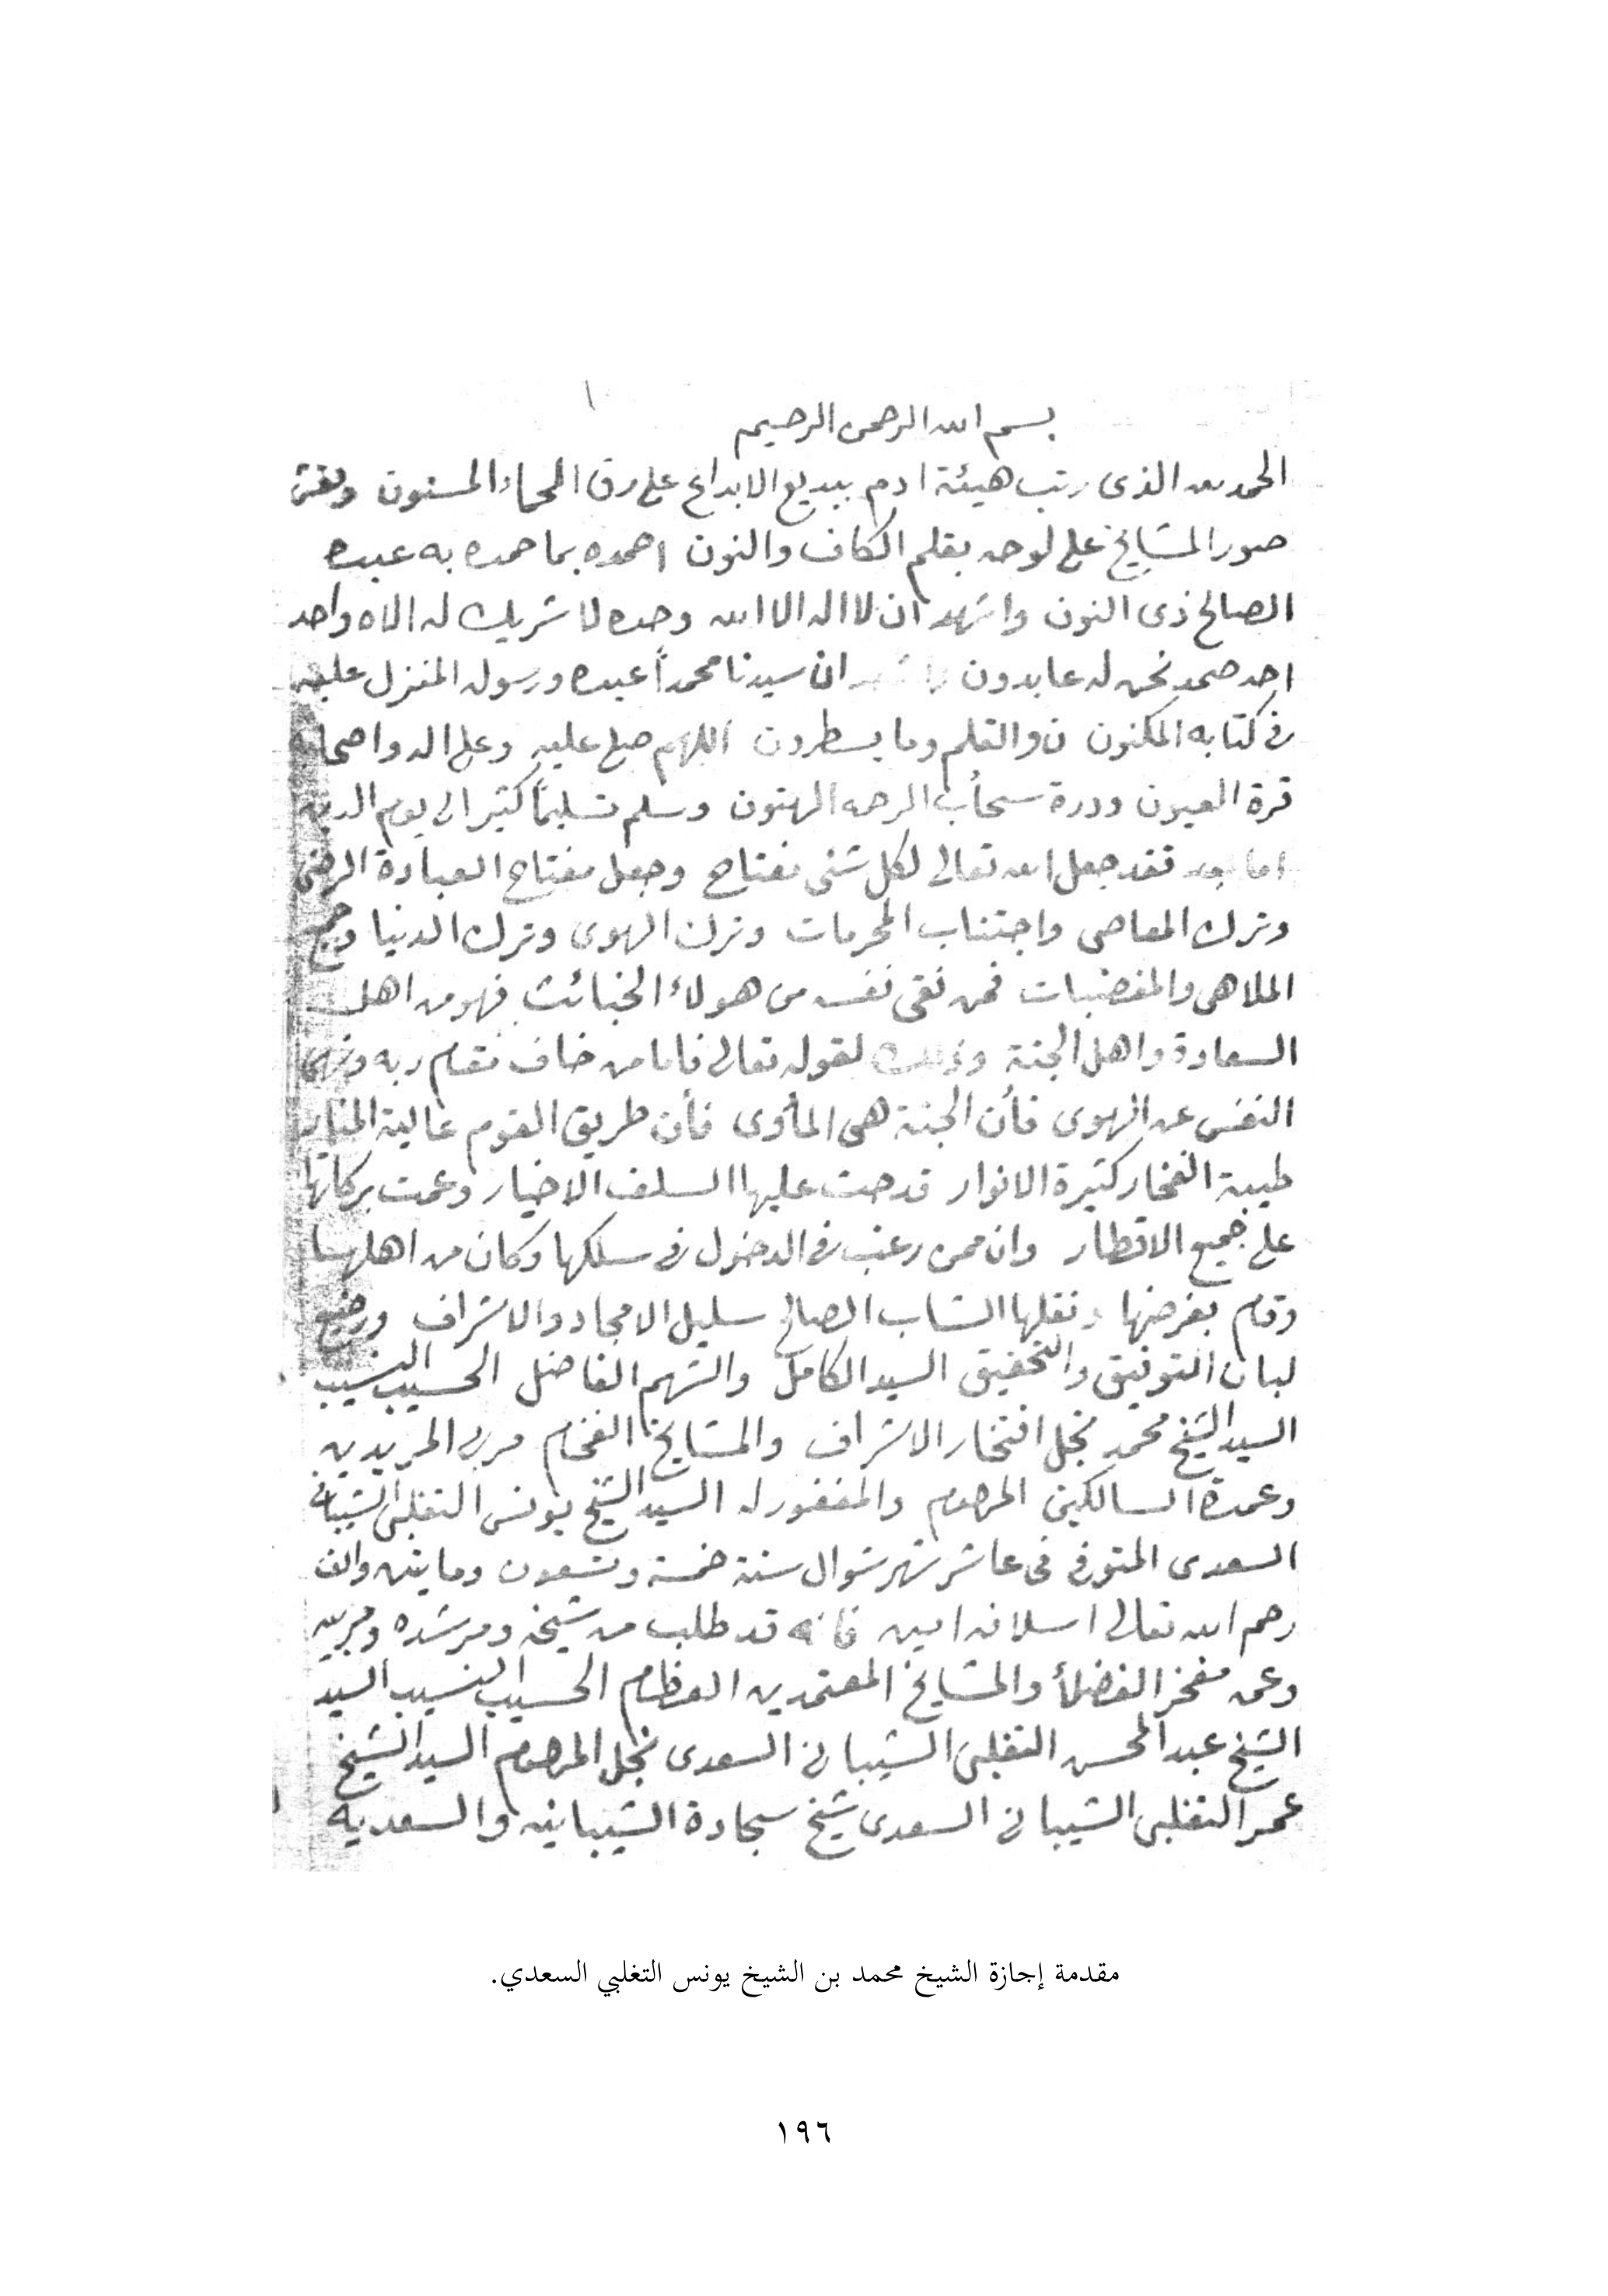 ١
بسم الله الرحمن الرحيم
الحمد لله الذى رتب هيئة ادم ببديع الابداع على رق الحماء المسنون ونقش
صور المشايخ على لوحه بقلم الكاف والنون احمده بما حمده به عبده
الصالح ذى النون واشهد ان لا اله الا الله وحده لا شريك له الاه واحد
احد صمد نحن له عابدون واشهد ان سيدنا محمداً عبده ورسوله المنزل عليه
فى كتابه المكنون ن والقلم وما يسطرون اللهم صلى عليه وعلى اله واصحابه
قرة العيون ودرة سحاب الرحمه الهتون وسلم تسليماً كثير الى يوم الدين
اما بعد فقد جعل الله تعالى لكل شئى مفتاح وجعل مفتاح العبادة الرضى
وترك المعاصى واجتناب المحرمات وترك الهوى وترك الدنيا وجميع
الملاهى والمغضبات فمن نقى نفسه من هولاء الخبائث فهو من اهل
السعادة واهل الجنة وذلك لقوله تعالى فاما من خاف مقام ربه ونهى
النفس عن الهوى فأن الجنة هى المأوى فأن طريق القوم عالية المنار
طيبة الفخار كثيرة الانوار قد حث عليها السلف الاخيار وعمت بركاتها
على جميع الاقطار وان ممن رغب فى الدخول فى سلكها وكان من اهلها
وقام بفرضها ونفلها الشاب الصالح سليل الامجاد والاشراف ورضيع
لبان التوفيق والتحقيق السيد الكامل والشهم الفاضل الحسيب النسيب
السيد الشيخ محمد نجل افتخار الاشراف والمشايخ الفخام مربى المريدين
وعمدة السالكين المرحوم والمغفور له السيد الشيخ يونس التغلبى الشيبانى
السعدى المتوفى فى عاشر شهر شوال سنة خمسة وتسعون ومايتين والف
رحم الله تعالى اسلافه امين فانه قد طلب من شيخه ومرشده ومربيه
وعمه مفخر الفضلأ والمشايخ المعتمدين العظام الحسيب النسيب السيد
الشيخ عبد المحسن التغلبى الشيبانى السعدى نجل المرحوم السيد الشيخ
عمر التغلبى الشيبانى السعدى شيخ سجادة الشيبانيه والسعديه
مقدمة إجازة الشيخ محمد بن الشيخ يونس التغلبي السعدي.
١٩٦